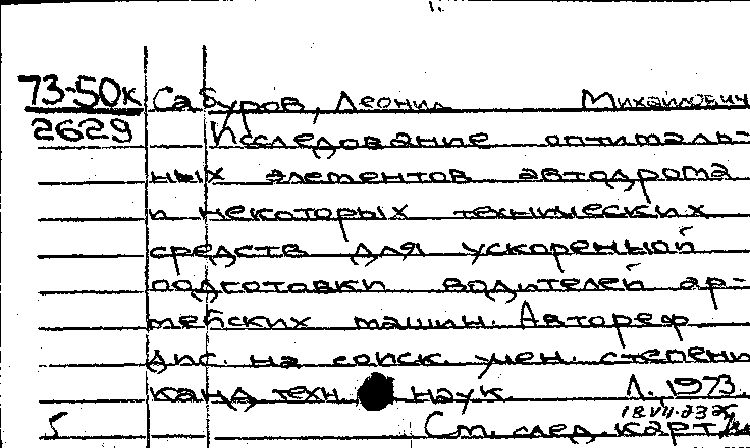 73-50к Сабуров, Леонид Михайлович
2629 Исследование оптималь-
ных элементов автодрома
и некоторых технических
средств для ускоренной
подготовки водителей ар-
мейских машин. Автореф
дис. на соиск. учен. степени
канд техн. наук. Л., 1973.
5 См. след карт.